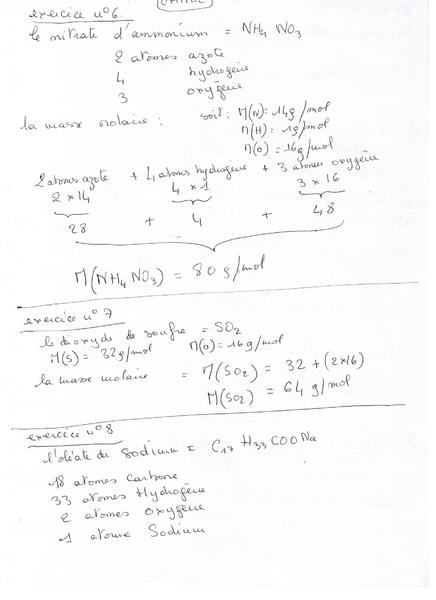 exercice n°6.
le nitrate d'ammonium = NH4 NO3
2 atomes azote
4 hydrogène
3 oxygène
la masse molaire : soit : M(N) = 14g/mol
M(H) = 1g/mol
M(O) = 16g/mol
2 atomes azote + 4 atomes hydrogène + 3 atomes oxygène
2 x 14 4 x 1 3 x 16
28 + 4 + 48
M(NH4 NO3) = 80 g/mol
exercice n°7
le dioxyde de soufre = SO2
M(S) = 32g/mol M(O) = 16g/mol
la masse molaire = M(SO2) = 32 + (2x16)
M(SO2) = 64 g/mol
exercice n°8
l'oléate du Sodium = C17 H33 COO Na
18 atomes Carbone
33 atomes Hydrogène
2 atomes oxygène
1 atome Sodium